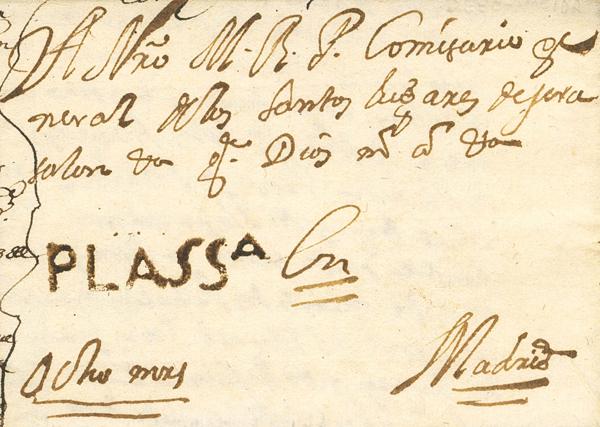 A Nro M. R. P. Comisario ge
neral de los santos lugares de Jeru
salen etc. qe. Dios ms as etc.
PLASSA En
Ocho mrs Madrid